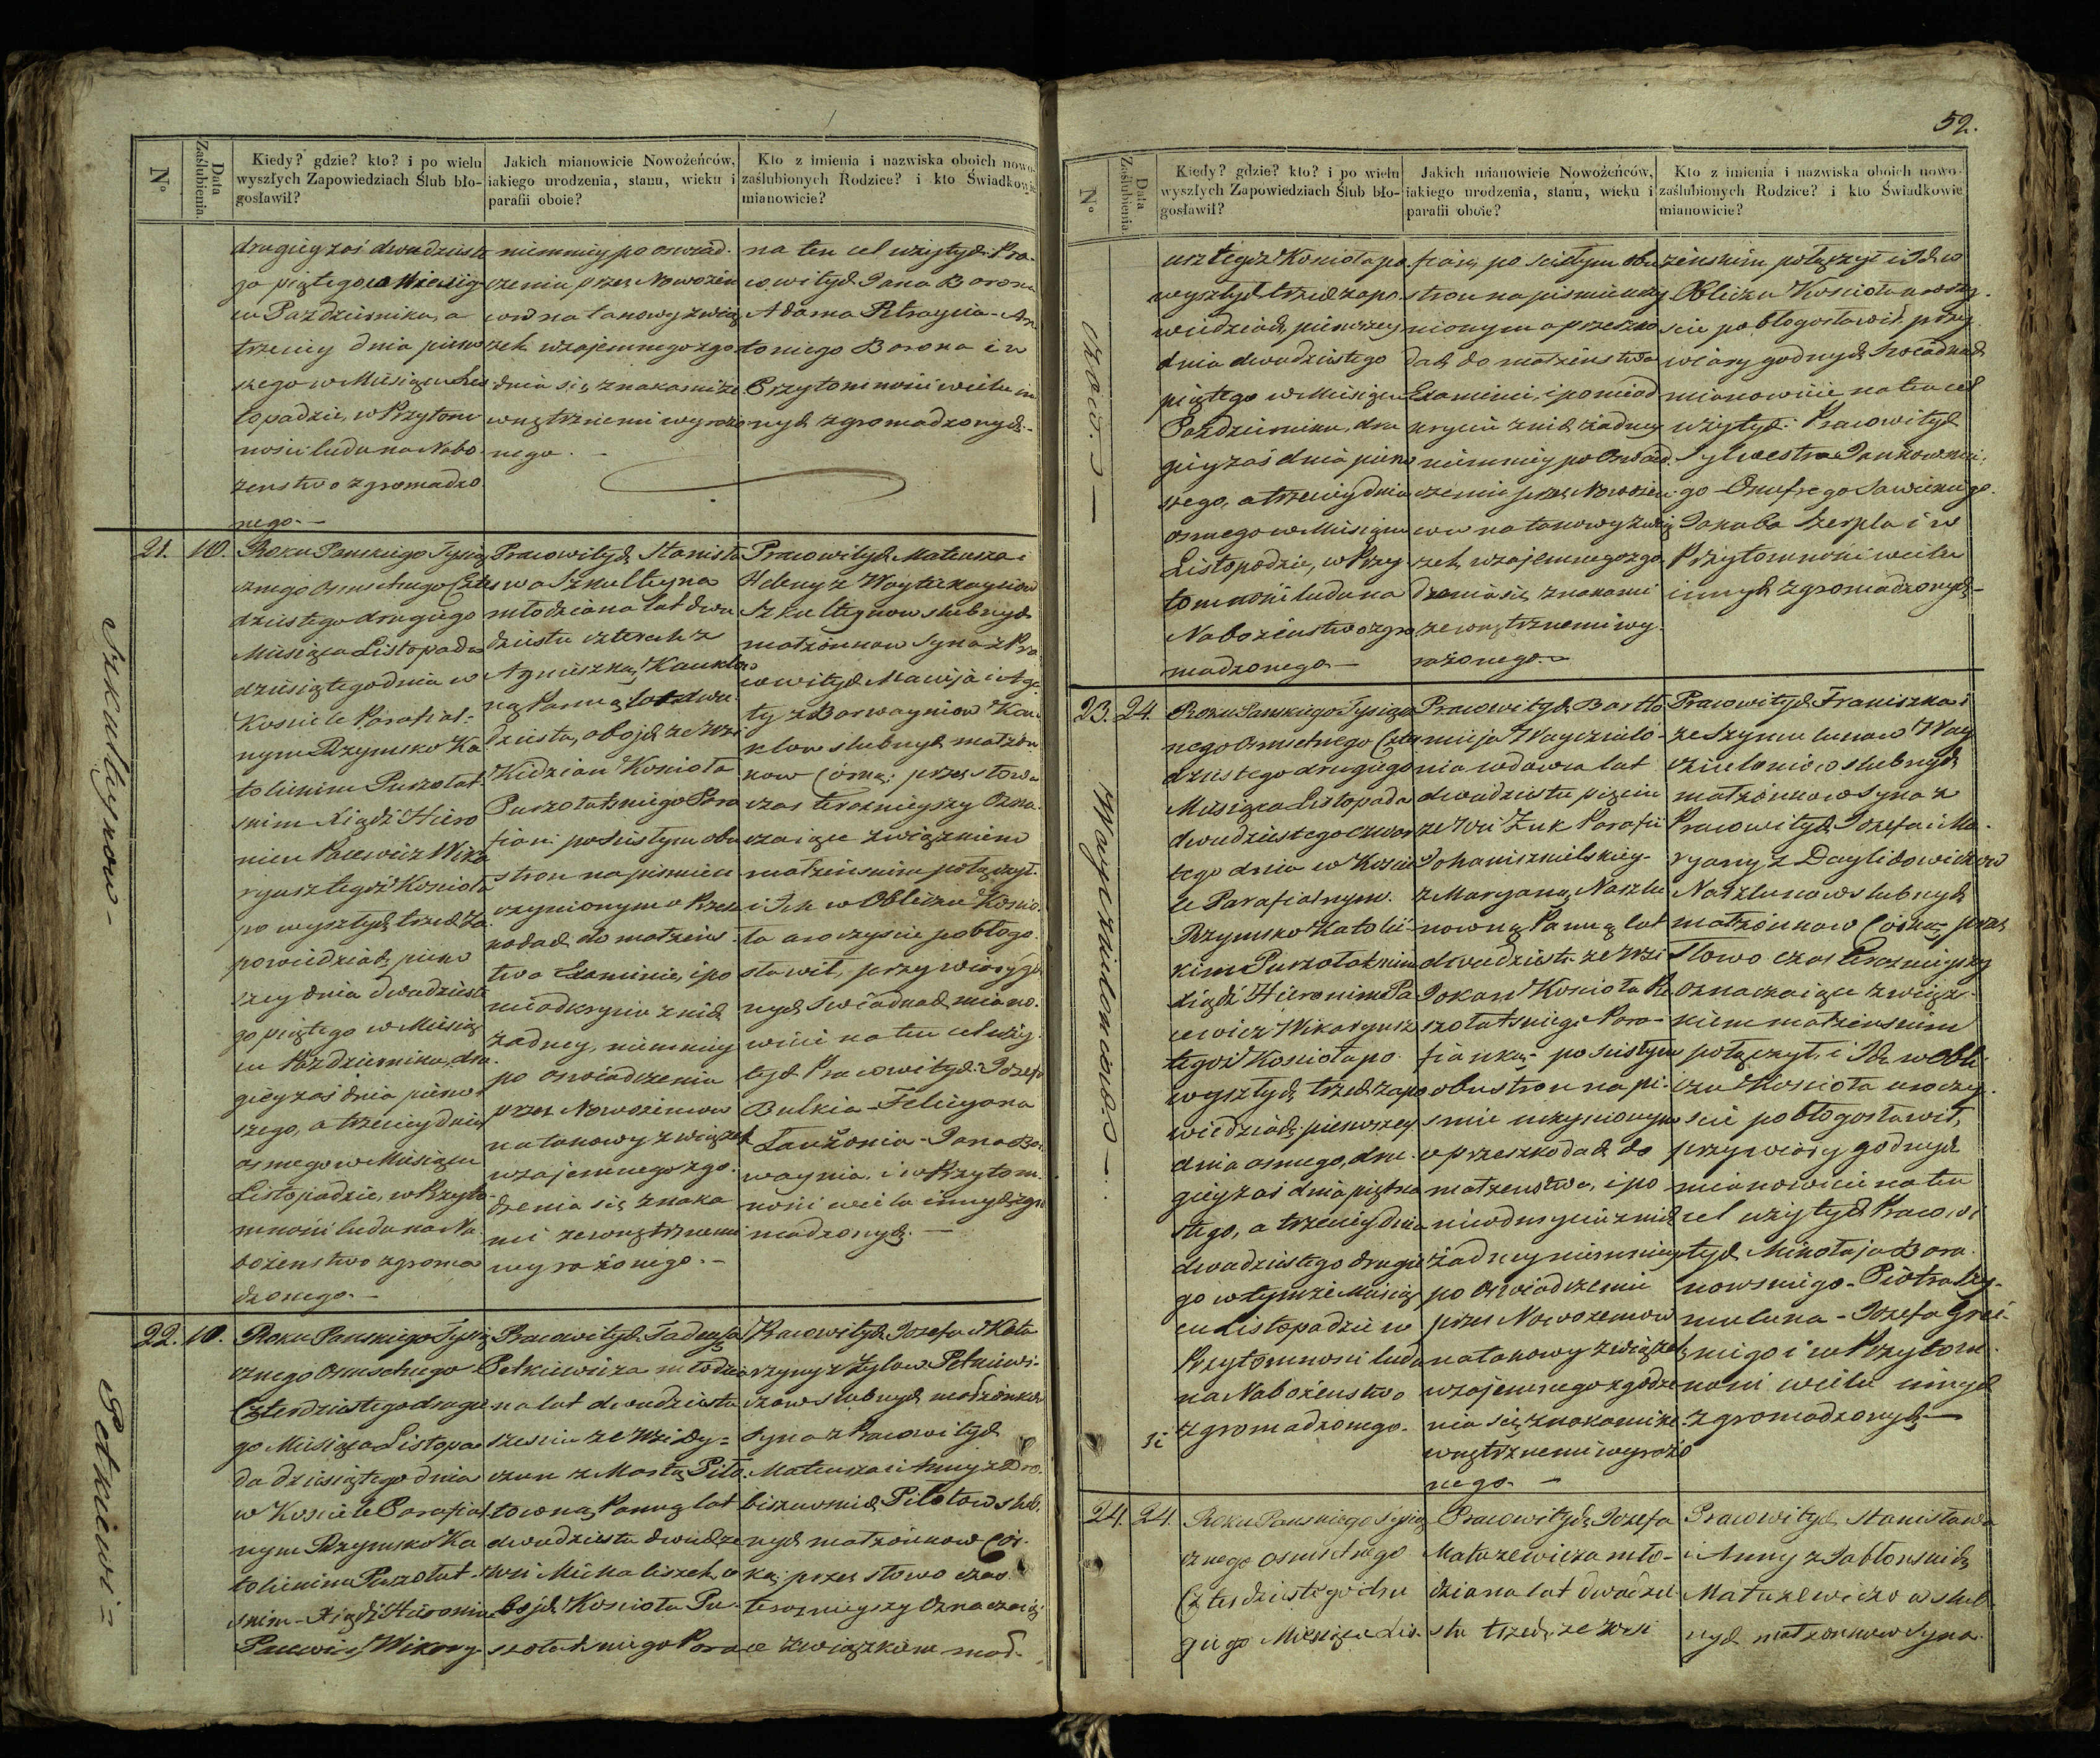 N°
Data Zaślubienia.
Kiedy? gdzie? kto? i po wielu
wyszłych Zapowiedziach Ślub bło-
gosławił?
Jakich mianowicie Nowożeńców,
iakiego urodzenia, stanu, wieku i
parafii oboie?
Kto z imienia i nazwiska oboich nowo-
zaślubionych Rodzice? i kto Świadkowie
mianowicie?
drugiey zaś dwudzieste
go piątego w Miesią
cu Październiku, a
trzeciey dnia pierw
szego w Miesiącu Lis
topadzie, w Przytom
ności ludu na Nabo
żenstwo zgromadzo
nego. —
niemniey po oswiad.
czeniu przez Nowożeń
cow na takowy zwią
zek wzajemnego zgo
dzenia się znakami ze
wnętrznemi wyrażo
nego. —
na ten cel użytych Pra-
cowitych Jana Barona
Adama Petraycia - An
toniego Barona i w
Przytomności wielu in
nych zgromadzonych. -
Szkultynow -
21.
10.
Roku Pańskiego Tysią
cznego Osmsetnego Czter
dziestego drugiego
Miesiąca Listopada
dziesiątego dnia w
Kosciele Parafial-
nym Rzymsko Ka
tolickim Puszołat
skim Xiądz Hiero
nim Pacewicz Wika
ryusz tegoż Kosciola
po wyszłych trzech Za
powiedziach, pierw
szey dnia dwudzieste
go piątego w Miesią
cu Październiku, dru
giey zaś dnia pierw
szego, a trzeciey dnia
osmego w Miesiącu
Listopadzie, w Przyto
mności ludu na Na
bożenstwo zgroma
dzonego. —
Pracowitych Stanisła
wa Szkultyna
młodziana lat dwu
dziestu czterech z
Agnieszką Kauklow
ną Panną lat dwu
dziestu, obojch ze Wsi
Kidzian Kosciola
Puszołatskiego Para
fian: po scisłym obu
stron na pismie u
czynionym o Przesz
kodach do małżens
twa Examinie, i po
nieodkryciu z nich
żadney, niemniey
po oswiadczeniu
przez Nowożencow
na takowy związek
wzajemnego zgo.
dzenia się znaka
mi zewnętrznemi
wyrażonego. -
Pracowitych Mateusza i
Heleny z Woytekayciow
Szkultynow slubnych
małżonkow Syna z Pra
cowitych Macieja i Aga
ty z Barwayniow Kau
klow slubnych małżon
kow Córką: przez słowa
czas teraznieyszy Ozna.
czaiące związkiem
małżenskim połączył.
i Ich w Obliczu Koscio.
ła uroczyscie pobłogo.
sławił, przy wiary go
nych Swiadkach miano.
wicie na ten cel uży.
tych Pracowitych: Jozefa
Bulkia - Felicyana
Laużonia - Jana Bar
waynia, i w Przytom.
ności wielu innych zgro
madzonych. —
Petkiewi =
22.
10.
Roku Pańskiego Tysią
cznego Osmsetnego
Czterdziestego drugie
go Miesiąca Listopa
da dziesiątego dnia
w Kosciele Parafial
nym Rzymsko Ka
tolickim Puszołat
skim - Xiądz Hieronim
Pacewicz Wikary
Pracowitych Tadeusza
Petkiewicza młodzia
na lat dwudziestu
szesciu ze Wsi Dy=
czun z Martą Piło
towną Panną lat
dwudziestu dwuch ze
Wsi Michaliszek, o
bojch Kosciola Pu-
szołatskiego Para
Pracowitych Jozefa i Kata
rzyny z Żyzlow Petkiewi-
czow slubnych małżonkow
Syna z Pracowitych
Mateusza i Anny z Dro.
biszewskich Pilotow slub.
nych małżonkow Cór.
ką; przez słowo czas
teraznieyszy Oznaczaią
ce Związkiem mał.
52.
N°
Data Zaślubienia.
Kiedy? gdzie? kto? i po wielu
wyszłych Zapowiedziach Ślub bło-
gosławił?
Jakich mianowicie Nowożeńców,
iakiego urodzenia, stanu, wieku i
parafii oboie?
Kto z imienia i nazwiska oboich nowo-
zaślubionych Rodzice? i kto Świadkowie
mianowicie?
czow. —
usz tegoż Kosciola po.
wyszłych trzech zapo
wiedziach, pierwszey
dnia dwudziestego
piątego w Miesiącu
Październiku, dru
giey zaś dnia pierw
szego, a trzeciey dnia
osmego w Miesiącu
Listopadzie, w Przy
tomności ludu na
Nabożenstwo zgro
madzonego —
fian; po scisłym obu
stron na pismie uczy
nionym o przeszko
dach do małżenstwa
Examinie, i po nieod
kryciu z nich żadney
niemniey po Oswiad.
czeniu przez Nowożen
cow na takowy zwią
zek wzajemnego zgo
dzenia się znakami
zewnętrznemi wy
rażonego. —
żenskim połączył i Ich w
Obliczu Kosciola uroczy.
scie pobłogosławił, przy
wiary godnych Swiadkach
mianowicie na ten cel
użytych: Pracowitych
Sylwestra Jankowski.
go - Onufrego Sawickiego.
Jakuba Szerpla i w
Przytomności wielu
innych zgromadzonych -
Wayczulonisow. —
23.
24.
Roku Pańskiego Tysiącz
nego Osmsetnego Czter
dziestego drugiego
Miesiąca Listopada
dwudziestego czwar
tego dnia w Koscie
le Parafialnym.
Rzymsko Katolic-
kim Puszołatskim
Xiądz Hieronim Pa
cewicz Wikaryusz
tegoż Kosciola po.
wyszłych trzech zapo
wiedziach, pierwszey
dnia osmego, dru-
giey zaś dnia piętna
stego, a trzeciey dnia
dwudziestego drugie
go w tymże Miesią
cu Listopadzie w
Przytomnosci ludu
na Nabożenstwo
zgromadzonego.
Pracowitych Bartło
mieja Wayczulo-
nia wdowca lat
dwudziestu pięciu
ze Wsi Żuk Parafii
Johaniszkielskiey -
z Maryanną Naszlu
nowną Panną lat
dwudziestu ze Wsi
Jokan Kosciola Pu
szołatskiego Para-
fianką; po scisłym
obustron na pi-
smie uczynionym
o przeszkodach do
małżenstwa, i po
nieodkryciu z nich
żadney niemniey
po Oswiadczeniu
przez Nowożencow
na takowy związek
wzajemnego zgodze
nia się znakami ze
wnętrznemi wyrażo
nego. —
Pracowitych Franciszka i
ze Szymulunow Way
czulonisow slubnych
małżonkow Syna z
Pracowitych Jozefa i Ma.
ryanny z Daylidowiczow
Naszlunow slubnych
małżonkow Córką; przez
Słowo czas teraznieyszy
Oznaczaiące związ.
kiem małżenskim
połączył, i Ich w Obli.
czu Kosciola uroczy.
scie pobłogosławił,
przy wiary godnych
mianowicie na ten
cel użytych Pracowi
tych Mikołaja Bara.
nowskiego - Piotra Szy.
muluna - Jozefa Grei-
skiego i w Przytom.
ności wielu innych
zgromadzonych —
24.
24.
Roku Pańskiego Tysią
cznego Osmsetnego
Czterdziestego dru
giego Miesiąca Lis.
Pracowitych Jozefa
Matuzewicza mło-
dziana lat dwudzie
stu trzech, ze Wsi
Pracowitych Stanisława
i Anny z Jabłonskich
Matuzewiczow slub
nych małżonkow Syna.